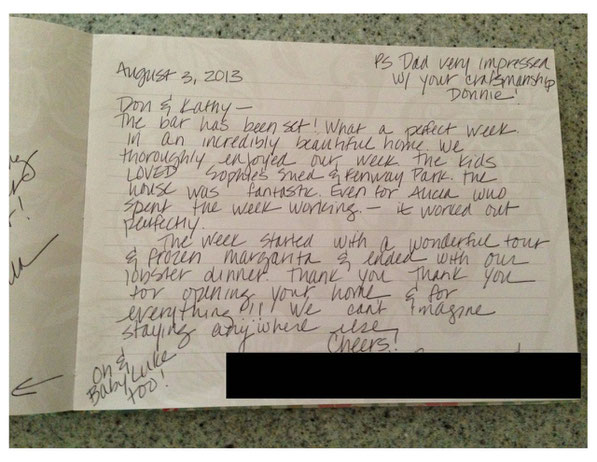 August 3, 2013
PS Dad very impressed
w/ your craftsmanship
Donnie!
Don & Kathy —
The bar has been set! What a perfect week
in an incredibly beautiful home. We
thoroughly enjoyed our week. The kids
LOVED Sophies Shed & Fenway Park. The
house was fantastic. Even for Alicia who
spent the week working — it worked out
perfectly.
The week started with a wonderful tour
& frozen margarita & ended with our
lobster dinner. Thank you Thank you
for opening your home & for
everything!!! We cant imagine
staying anywhere else,
Cheers!
Oh &
Baby Luke
too!